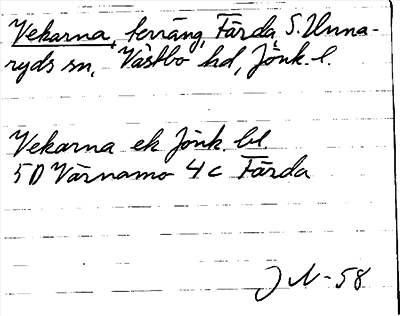 Vekarna, terräng, Färda S. Unna-
ryds sn, Västbo hd, Jönk. l.
Vekarna ek Jönk. bl.
5D Värnamo 4c Färda
JN-58